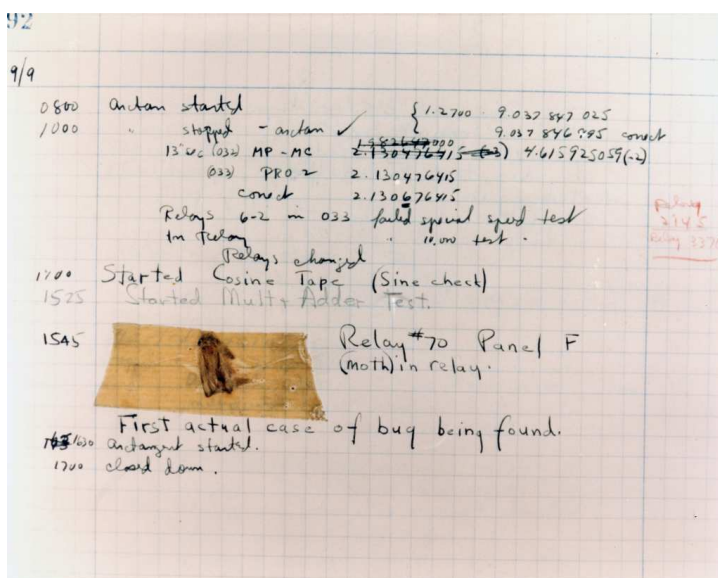 92
9/9
0800 arctan started { 1.2700 9.037 847 025
1000 " stopped - arctan ✓ 9.037 846 995 correct
13" uc (032) MP - MC 2.130476415 4.615925059(-2)
(033) PRO 2 2.130476415
correct 2.130676415
Relays 6-2 in 033 failed special speed test
In Relay " 10.000 test .
Relays changed
Started Cosine Tape (Sine check)
1525 Started Mult + Adder Test.
1545 Relay #70 Panel F
(moth) in relay.
First actual case of bug being found.
1630 arctangent started.
1700 closed down.